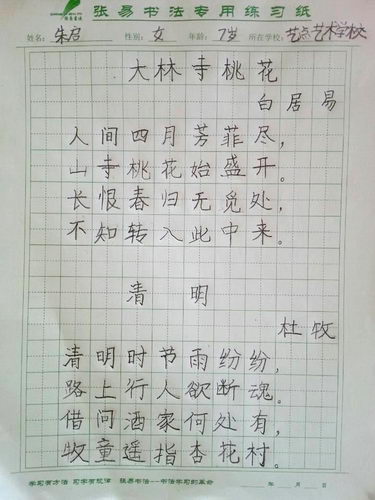 张易书法专用练习纸
姓名: 朱启 性别: 女 年龄: 7岁 所在学校: 艺点艺术学校
大林寺桃花
白居易
人间四月芳菲尽,
山寺桃花始盛开。
长恨春归无觅处,
不知转入此中来。
清明
杜牧
清明时节雨纷纷,
路上行人欲断魂。
借问酒家何处有,
牧童遥指杏花村。
学习有方法 写字有规律 张易书法--书法学习的革命 年 月 日